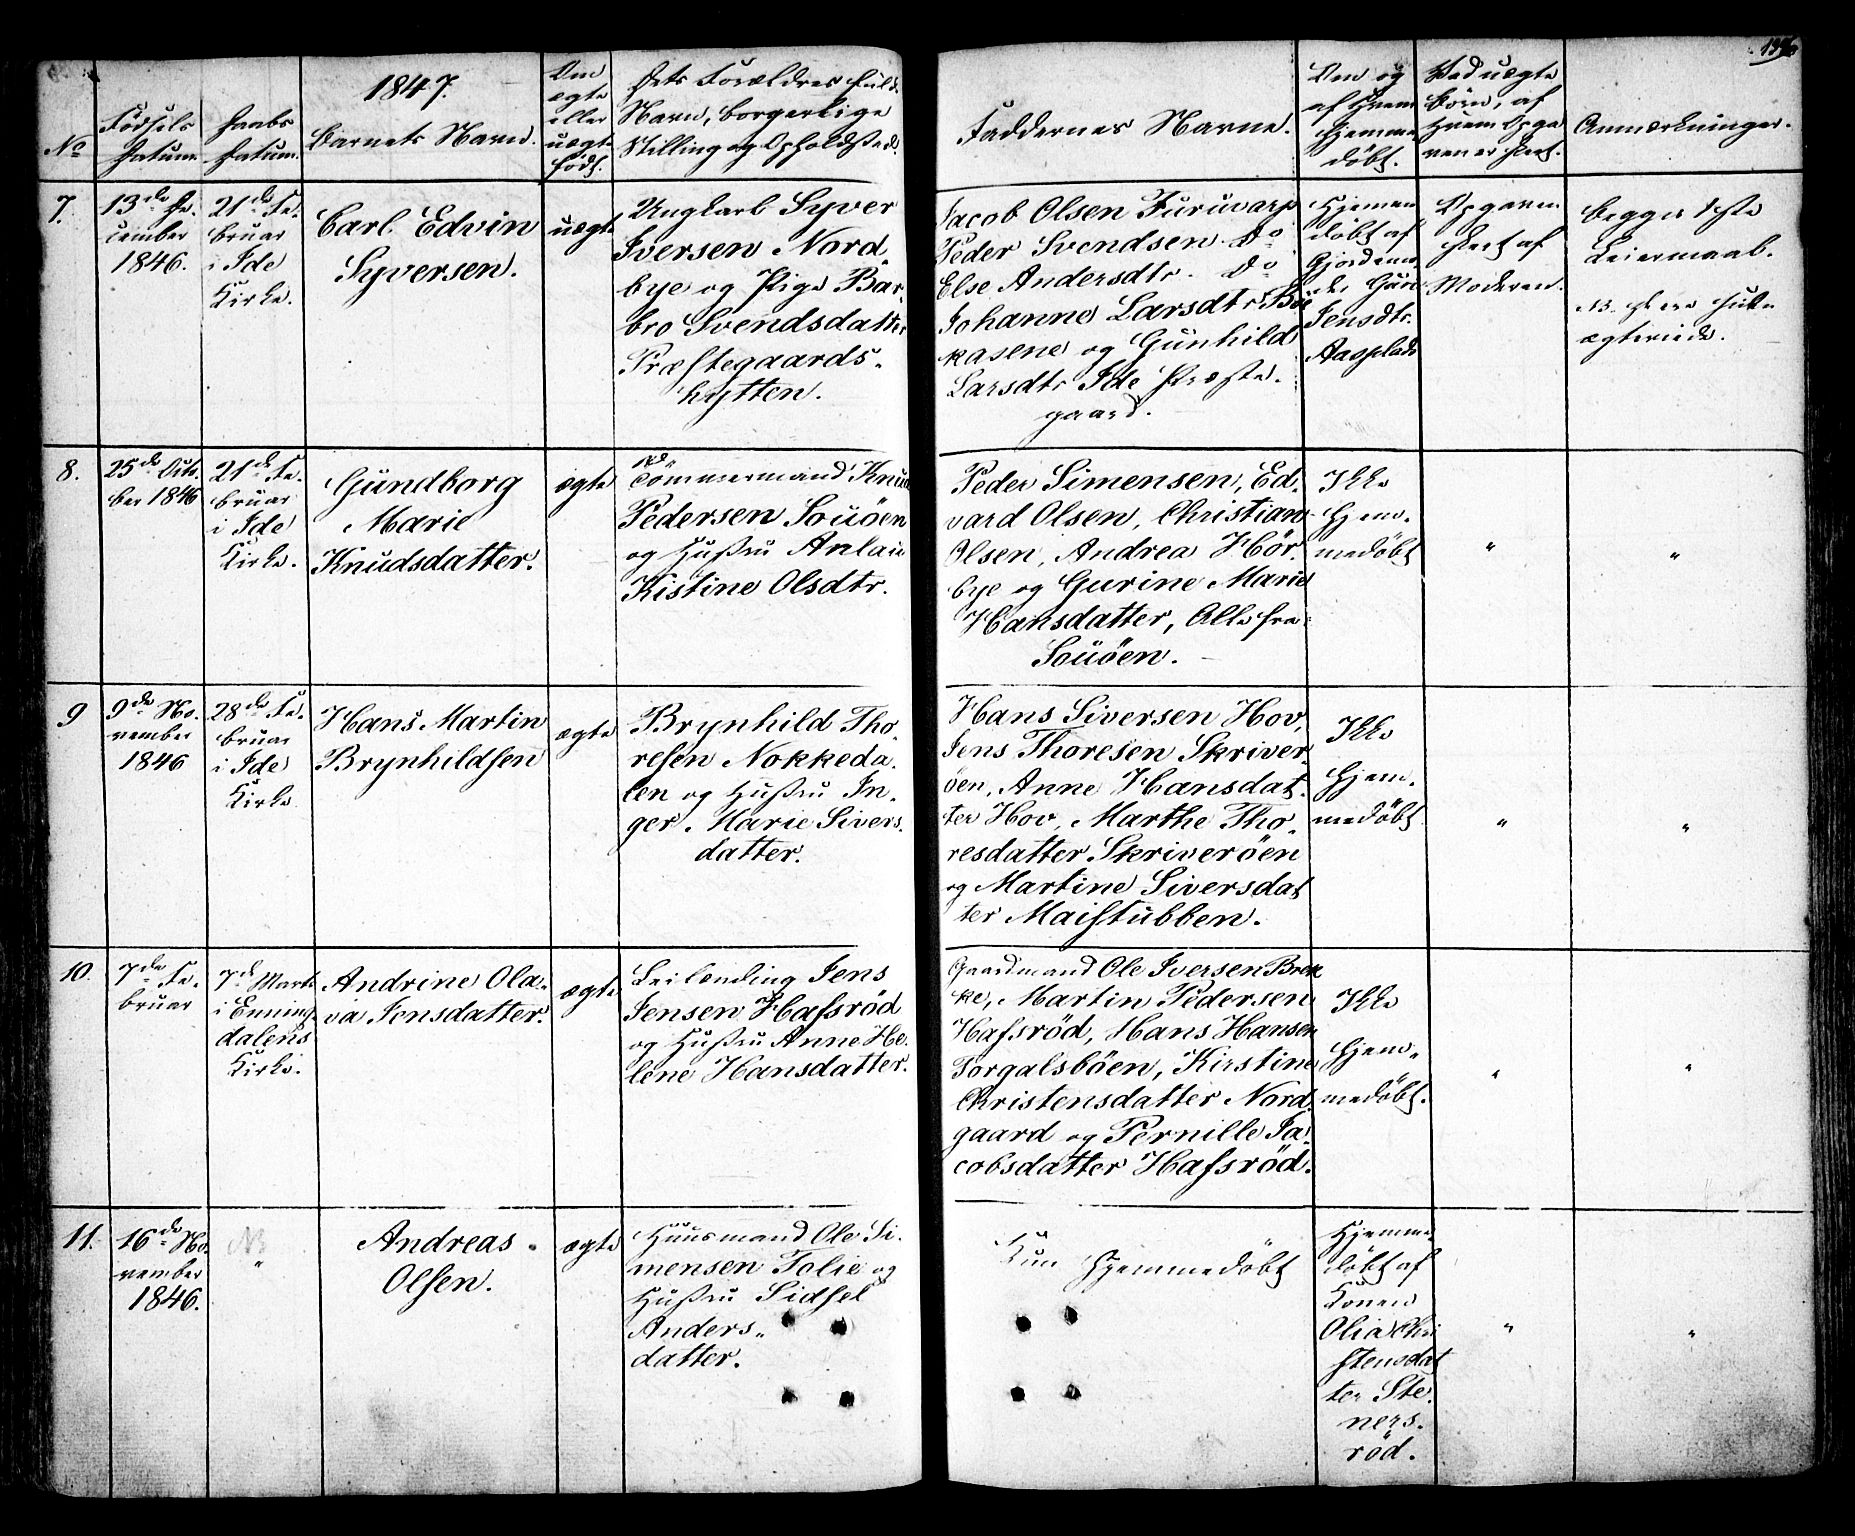 1847.
No
Fødsels
Datum.
Daabs
Datum.
Barnets Navn.
Om
ægte
eller
uægte
født.
Dets Forældres fulde
Navn, borgerlige
Stilling og Opholdsted.
Faddernes Navne.
Om og
af Hvem
hjemme
døbt.
Ved uægte
Børn, af
Hvem Opga
ven er skeet.
Anmærkninger.
7.
13de De-
cember
1846.
21de Fe-
bruar
i Ide
Kirke.
Carl Edvin
Syversen.
uægte
Ungkarl Syver
Iversen Nord-
bye og Pige Bar-
bro Svendsdatter
Præstegaards-
hytten.
Jacob Olsen Furuvarp
Peder Svendsen Do
Else Andersdtr. Do
Johanne Larsdtr Bøe
kasene og Gunhild
Larsdtr Ide Præste-
gaard.
Hjemme
døbt af
Gjordemo
der
Jensdtr.
Aasplads
Opgaven
skeet af
Moderen.
Begges 1ste
Leiermaal.
ægteviede.
8.
25de Octo-
ber 1846
21de Fe-
bruar
i Ide
Kirke.
Gundborg
Marie
Knudsdatter.
ægte
Tømmermand Knud
Pedersen Souöen
og Hustru Anlaui
Kistine Olsdtr.
Peder Simensen, Ed-
vard Olsen, Christian
Olsen, Andrea Hör-
bye og Gurine Marie
Hansdatter, Alle fra
Souöen.
Ikke
Hjem-
medøbt
"
"
9
9de No-
vember
1846
28de Fe-
bruar
i Ide
Kirke
Hans Martin
Brynhildsen
ægte
Brynhild Tho-
resen Nokkeda-
len og Hustru In-
ger Marie Sivers-
datter.
Hans Siversen Hov,
Jens Thoresen Skriver-
öen, Anne Hansdat-
ter Hov, Marthe Tho-
resdatter Skriveröen
og Martine Siversdat
ter Maistubben.
Ikke
Hjem-
medøbt
"
"
10.
7de Fe-
bruar
7de Marts
i Enning-
dalens
Kirke.
Andrine Ola-
va Jensdatter.
ægte
Leilending Jens
Jensen Hafsröd
og Hustru Anne He-
lene Hansdatter.
Gaardmand Ole Iversen Brek
ke, Martin Pedersen
Hafsröd, Hans Hansen
Torgalsböen, Kirstine
Christensdatter Nord-
gaard og Pernille Ja-
cobsdatter Hafsröd.
Ikke
Hjem-
medøbt.
"
"
11.
16de No-
vember
1846.
NB
"
Andreas
Olsen.
ægte
Huusmand Ole Si-
mensen Folie og
Hustru Sidsel
Anders-
datter.
Kun Hjemmedøbt
Hjemme
døbt af
Konen
Olia Chri
stensdat
ter Ste-
ners-
röd.
"
"